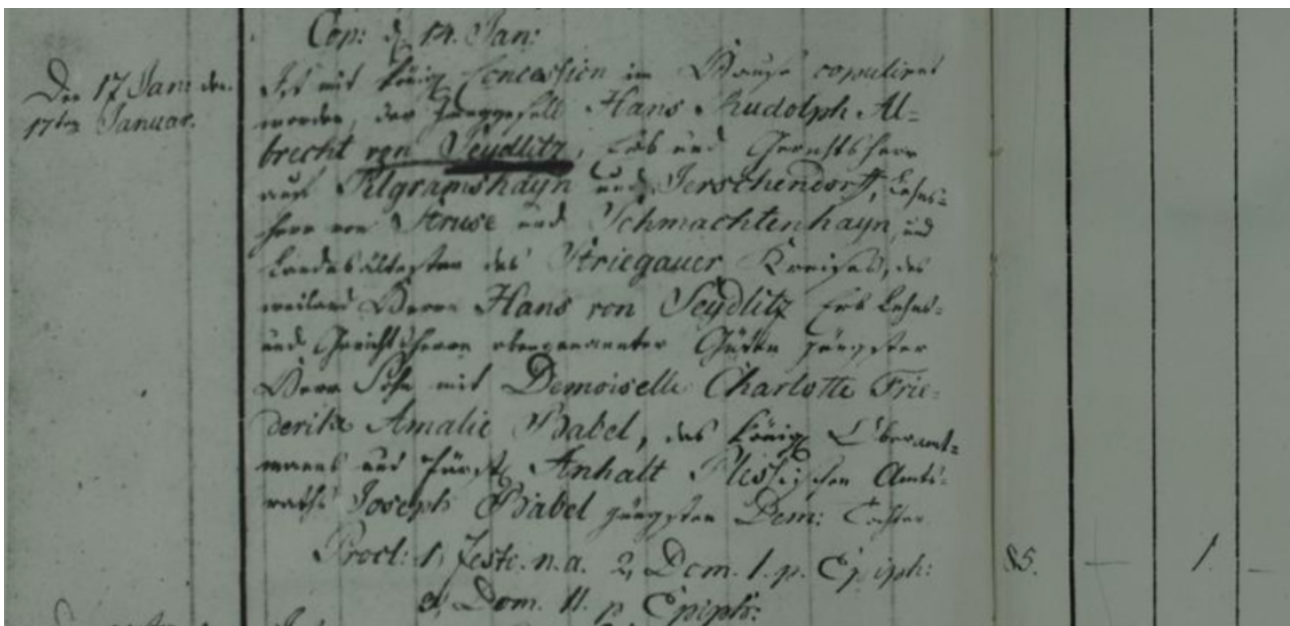 Cop: d. 14. Jan:
Den 17 Jan: den
17ten Januar.
Ist mit Königl Concession im Hause copulirt
worden, der Junggesell Hans Rudolph Al=
brecht von Seydlitz, Erb und Gerichtsherr
auf Pilgramshayn und Jerschendorff, Lehns=
herr von Struse und Schmachtenhayn, und
Landesältester des Striegauer Kreises, des
weiland Herrn Hans von Seydlitz Erb Lehns=
und Gerichtsherrn obengenannter Güter jüngster
Herr Sohn mit Demoiselle Charlotte Frie=
derika Amalie Babel, des Königl Oberamt=
manns und Fürstl Anhalt Plessischen Amts=
raths Joseph Babel jüngsten Dem: Tochter
Procl: 1, Festo. n. a. 2, Dom. 1. p. Epiph: 85. — 1. —
3, Dom. II. p Epiph: